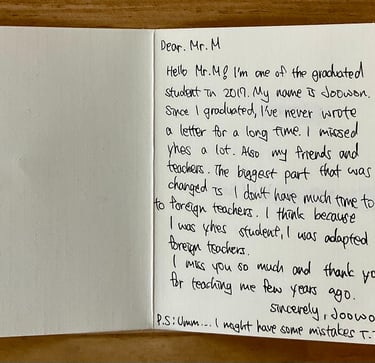 Dear. Mr.M
Hello Mr.M! I'm one of the graduated
student in 2017. My name is Joowon.
Since I graduated, I've never wrote
a letter for a long time. I missed
yhes a lot. Also my friends and
teachers. The biggest part that was
changed is I don't have much time to
to foreign teachers. I think because
I was yhes student, I was adapted
foreign teachers.
I miss you so much and thank yo
for teaching me few years ago.
sincerely, Joowo
P.S: Umm.... I might have some mistakes T.T